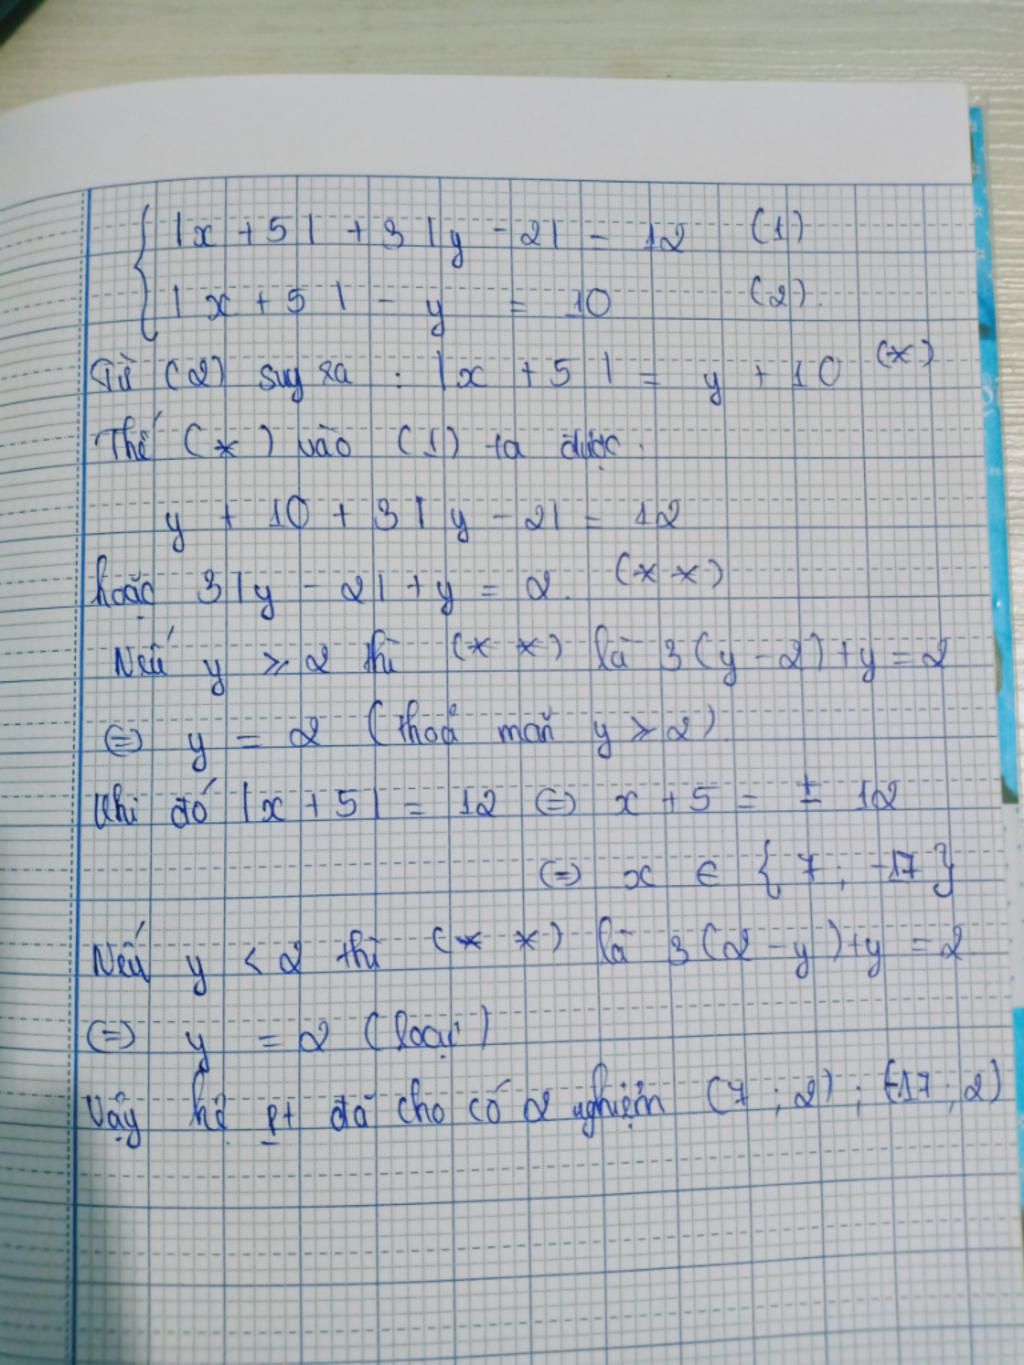 |x + 5| + 3|y - 2| = 12 (1)
|x + 5| - y = 10 (2).
Từ (2) suy ra : |x + 5| = y + 10 (*)
Thế (*) vào (1) ta được.
y + 10 + 3|y - 2| = 12
hoặc 3|y - 2| + y = 2. (**)
Nếu y ⩾ 2 thì (**) là 3(y - 2) + y = 2
⇔ y = 2 (thoả mãn y ⩾ 2).
Khi đó |x + 5| = 12 ⇔ x + 5 = ± 12
⇔ x ∈ {7 ; -17}
Nếu y < 2 thì (**) là 3(2 - y) + y = 2
⇔ y = 2 (loại)
Vậy hệ pt đã cho có 2 nghiệm (7 ; 2) ; (-17 ; 2)